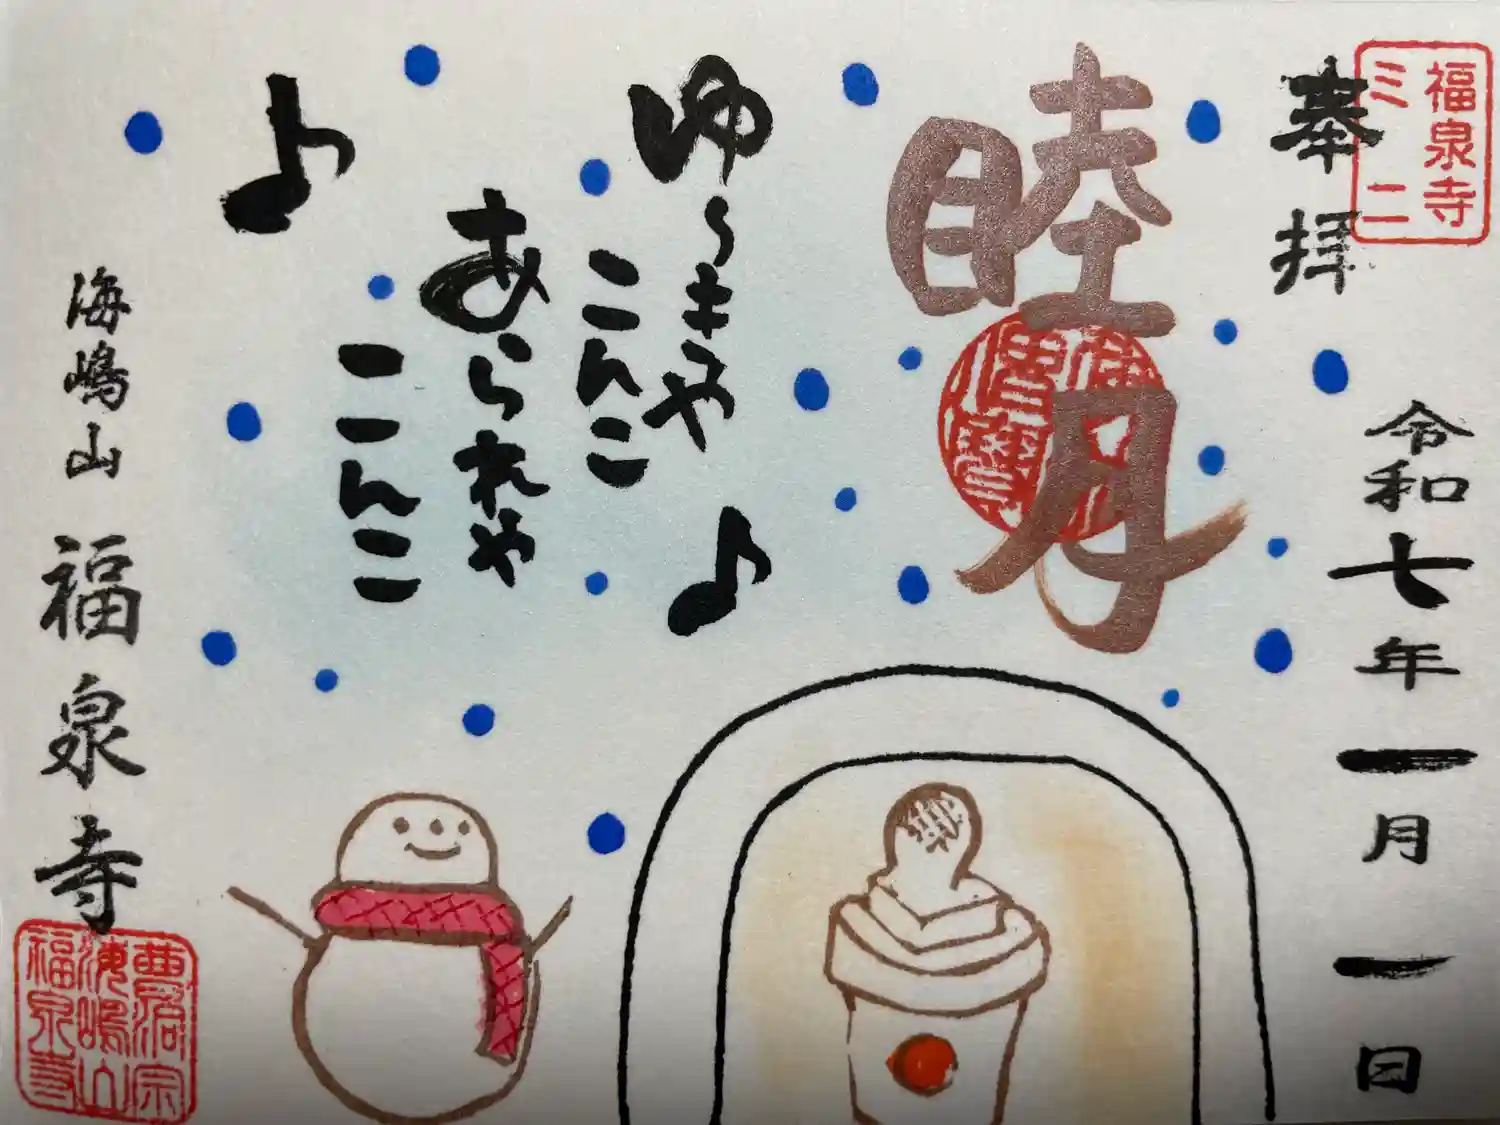 福泉寺
ミニ
奉拝
令和七年一月一日
睦月
ゆ〜きや
こんこ♪
あられや
こんこ♪
海嶋山 福泉寺
曹洞宗
海嶋山
福泉寺